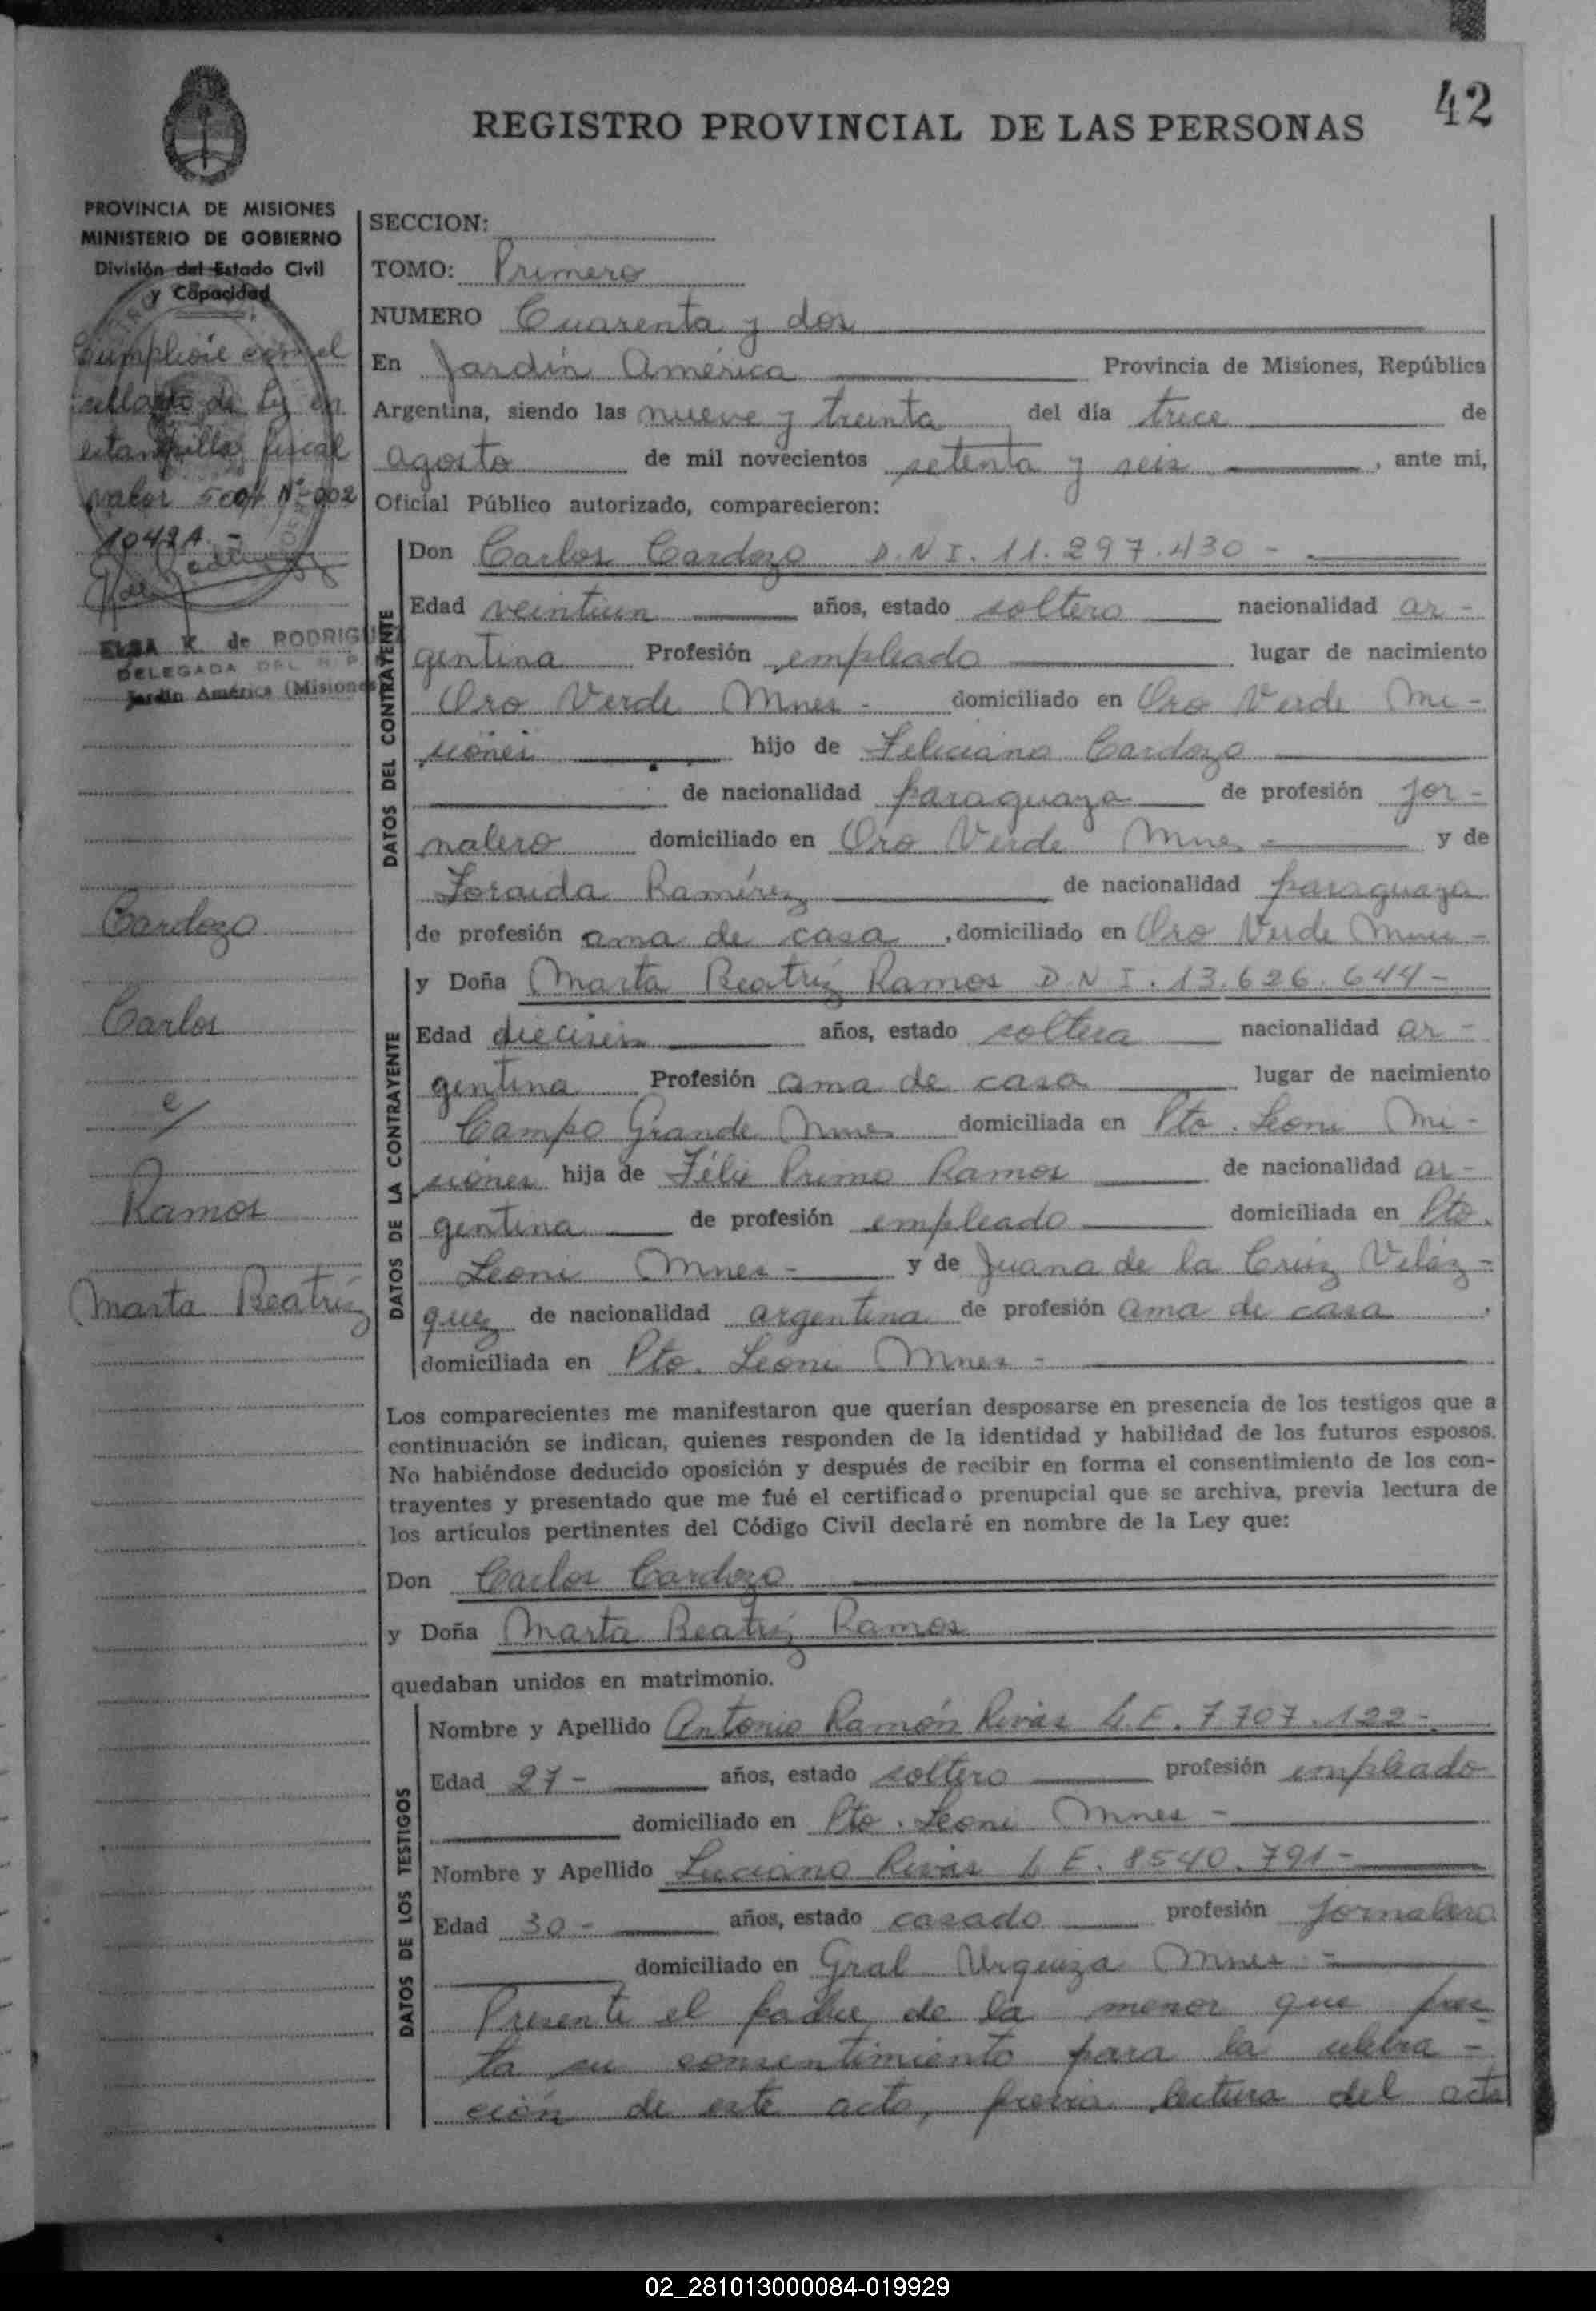 42
REGISTRO PROVINCIAL DE LAS PERSONAS
PROVINCIA DE MISIONES
MINISTERIO DE GOBIERNO
División del Estado Civil
y Capacidad
Cumplióse con el
sellado de Ley en
estampilla fiscal
valor 500$ Nº 002
1042A -
ELSA K. de RODRIGUEZ
DELEGADA DEL R. P.
Jardín América (Misiones)
Cardozo
Carlos
c/
Ramos
Marta Beatríz
SECCION:
TOMO: Primero
NUMERO Cuarenta y dos
En Jardín América Provincia de Misiones, República
Argentina, siendo las nueve y treinta del día trece de
agosto de mil novecientos setenta y seis, ante mi,
Oficial Público autorizado, comparecieron:
DATOS DEL CONTRAYENTE
Don Carlos Cardozo D.N.I. 11.297.430 -
Edad veintiun años, estado soltero nacionalidad ar-
gentina Profesión empleado lugar de nacimiento
Oro Verde Mnes - domiciliado en Oro Verde Mi-
siones hijo de Feliciano Cardozo
de nacionalidad paraguaya de profesión jor-
nalero domiciliado en Oro Verde Mnes - y de
Zoraida Ramírez de nacionalidad paraguaya
de profesión ama de casa, domiciliado en Oro Verde Mnes -
DATOS DE LA CONTRAYENTE
y Doña Marta Beatríz Ramos D.N.I. 13.626.644 -
Edad dieciseis años, estado soltera nacionalidad ar-
gentina Profesión ama de casa lugar de nacimiento
Campo Grande Mnes domiciliada en Pto. Leoni Mi-
siones hija de Félix Primo Ramos de nacionalidad ar-
gentina de profesión empleado domiciliada en Pto.
Leoni Mnes - y de Juana de la Cruz Veláz-
quez de nacionalidad argentina de profesión ama de casa,
domiciliada en Pto. Leoni Mnes -
Los comparecientes me manifestaron que querían desposarse en presencia de los testigos que a
continuación se indican, quienes responden de la identidad y habilidad de los futuros esposos.
No habiéndose deducido oposición y después de recibir en forma el consentimiento de los con-
trayentes y presentado que me fué el certificado prenupcial que se archiva, previa lectura de
los artículos pertinentes del Código Civil declaré en nombre de la Ley que:
Don Carlos Cardozo
y Doña Marta Beatriz Ramos
quedaban unidos en matrimonio.
DATOS DE LOS TESTIGOS
Nombre y Apellido Antonio Ramón Rivas L.E. 7.707.122 -
Edad 27 - años, estado soltero profesión empleado
domiciliado en Pto. Leoni Mnes -
Nombre y Apellido Luciano Rivas L.E. 8540.791 -
Edad 30 - años, estado casado profesión jornalero
domiciliado en Gral Urquiza Mnes -
Presente el padre de la menor que pres-
ta su consentimiento para la celebra-
ción de este acto, previa lectura del acta
02_281013000084-019929